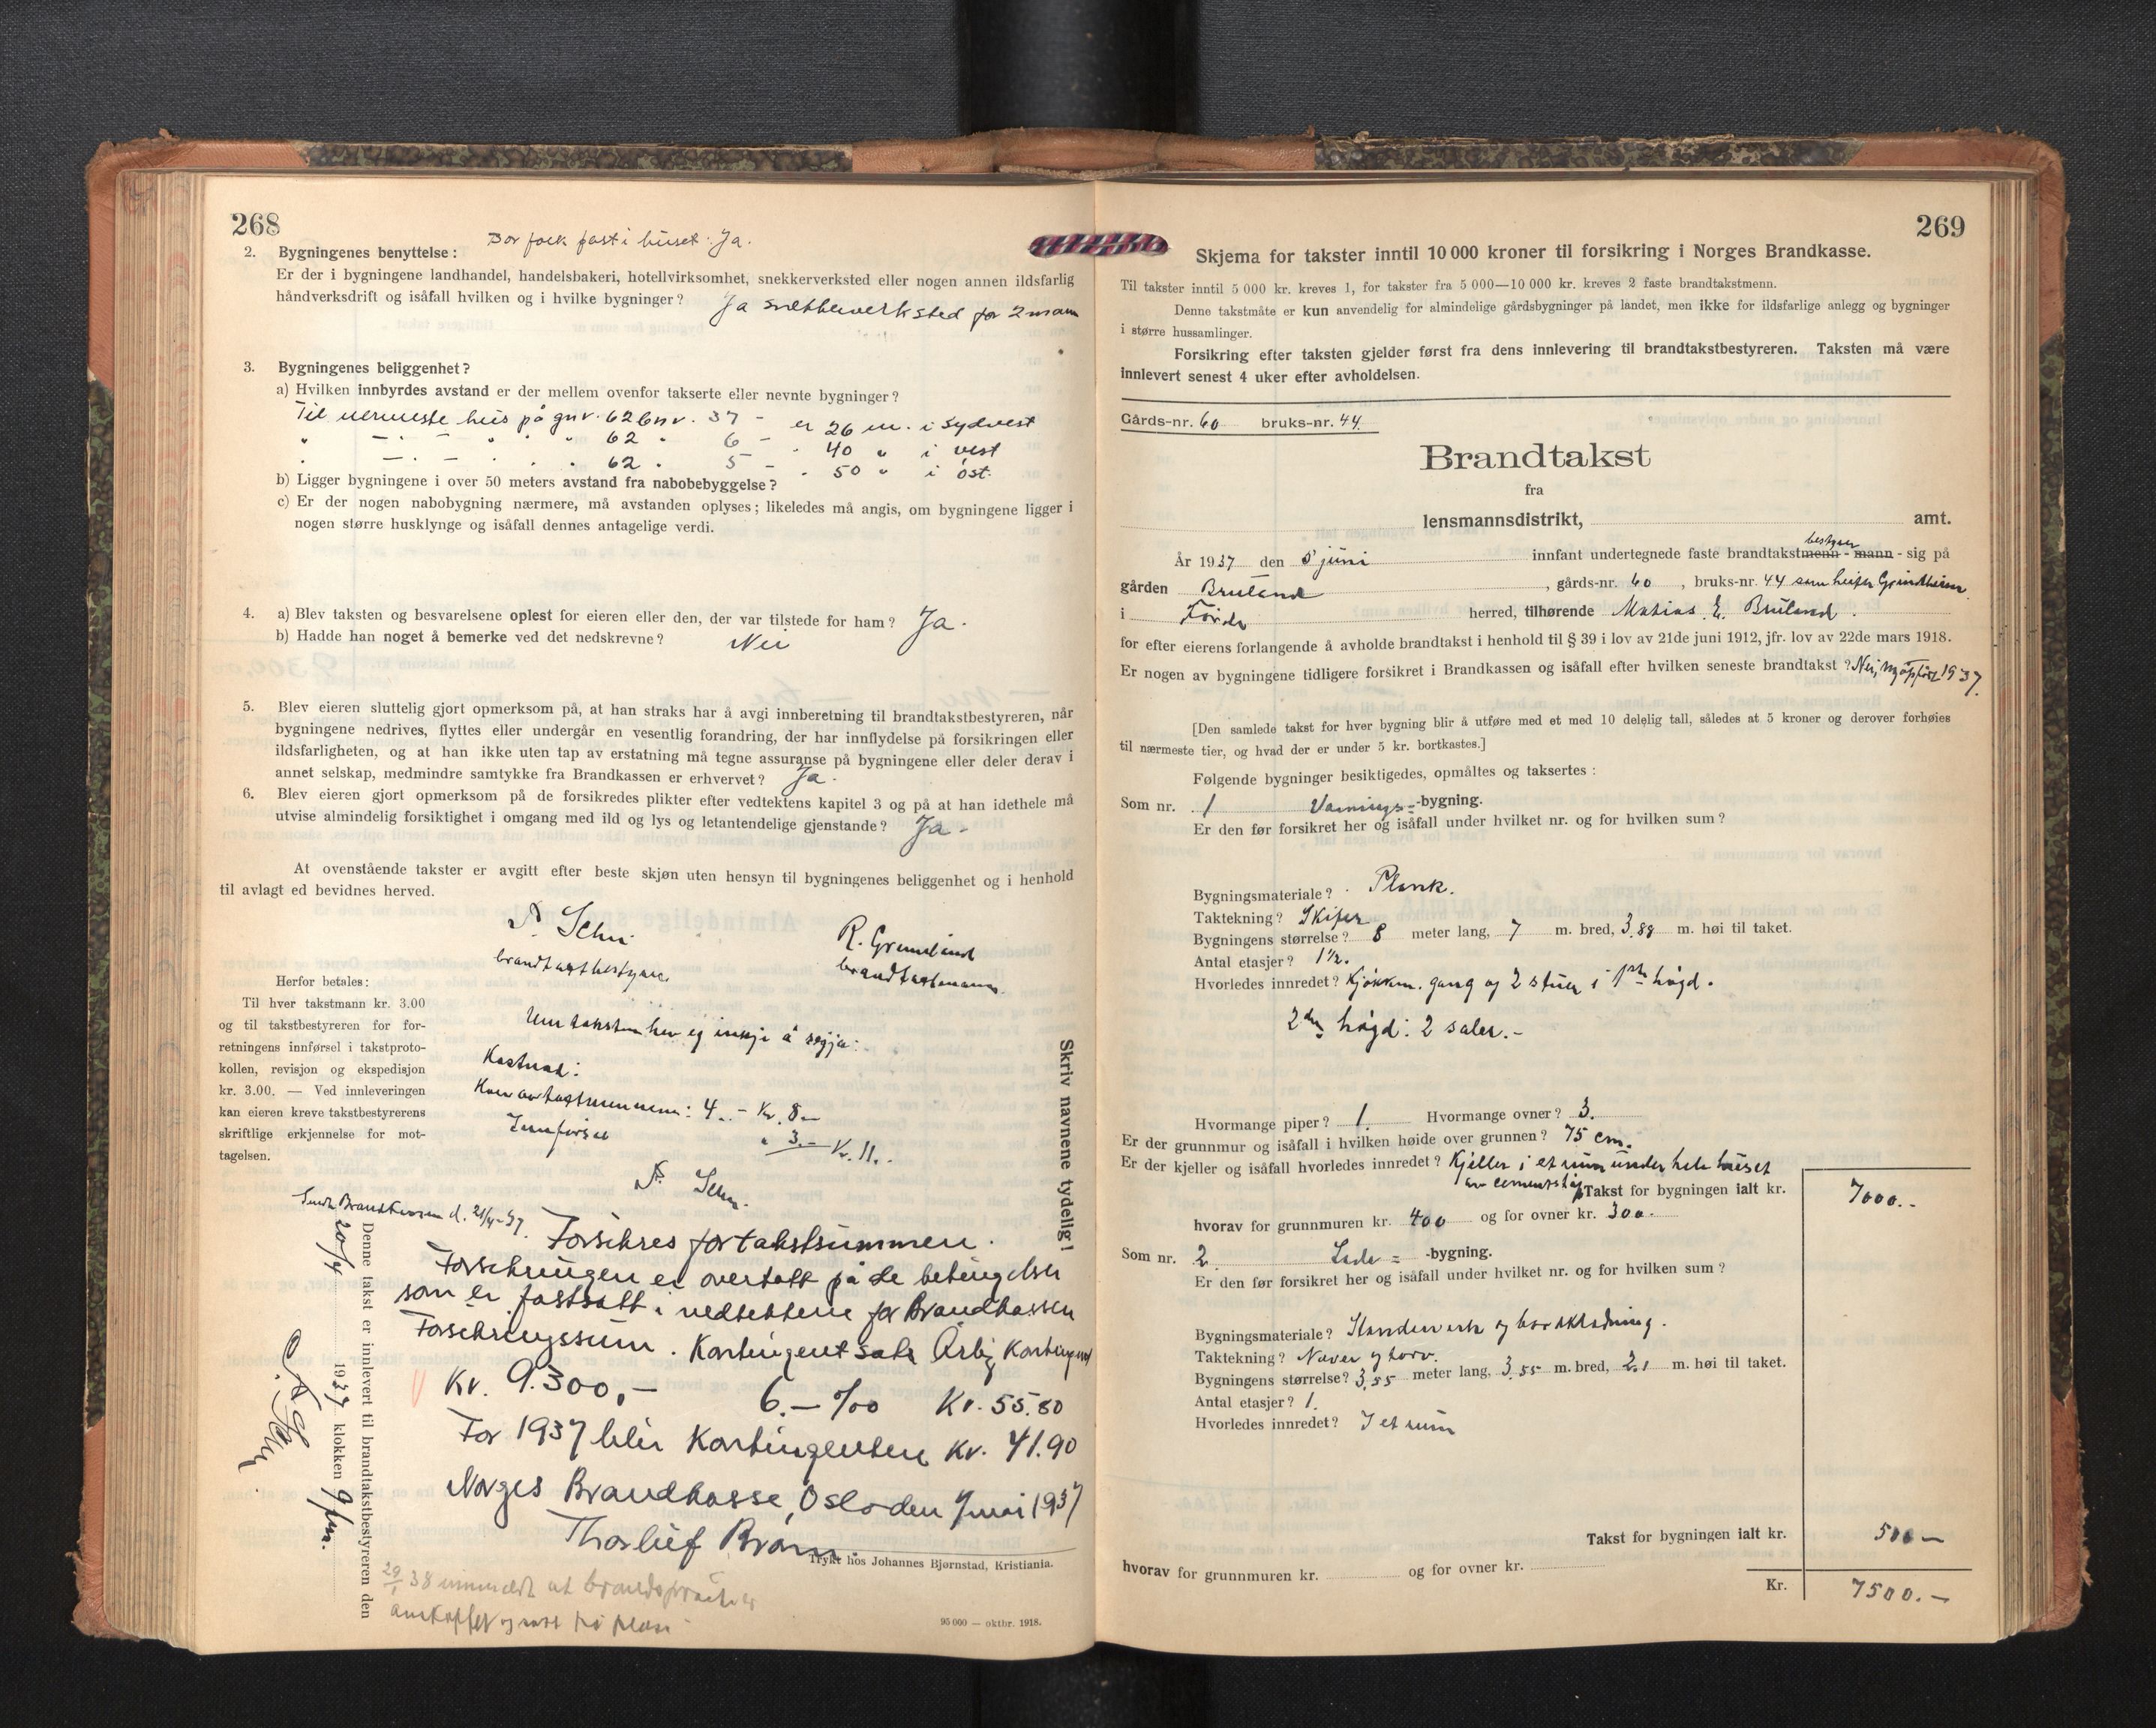 268
Bor folk fast i huset: Ja.
2. Bygningenes benyttelse:
Er der i bygningene landhandel, handelsbakeri, hotellvirksomhet, snekkerverksted eller nogen annen ildsfarlig
håndverksdrift og isåfall hvilken og i hvilke bygninger? Ja snekkerverksted for 2 mann
3. Bygningenes beliggenhet?
a) Hvilken innbyrdes avstand er der mellem ovenfor takserte eller nevnte bygninger?
Til nermeste hus på gnr. 62 bnr. 37 - er 26 m. i sydvest
" - . - " " " 62 " 6 - " 40 " i vest
" - . - " " " 62 " 5 - " 50 " i øst.
b) Ligger bygningene i over 50 meters avstand fra nabobebyggelse?
c) Er der nogen nabobygning nærmere, må avstanden oplyses; likeledes må angis, om bygningene ligger i
nogen større husklynge og isåfall dennes antagelige verdi.
4. a) Blev taksten og besvarelsene oplest for eieren eller den, der var tilstede for ham? Ja.
b) Hadde han noget å bemerke ved det nedskrevne? Nei
5. Blev eieren sluttelig gjort opmerksom på, at han straks har å avgi innberetning til brandtakstbestyreren, når
bygningene nedrives, flyttes eller undergår en vesentlig forandring, der har innflydelse på forsikringen eller
ildsfarligheten, og at han ikke uten tap av erstatning må tegne assuranse på bygningene eller deler derav i
annet selskap, medmindre samtykke fra Brandkassen er erhvervet? Ja.
6. Blev eieren gjort opmerksom på de forsikredes plikter efter vedtektens kapitel 3 og på at han idethele må
utvise almindelig forsiktighet i omgang med ild og lys og letantendelige gjenstande? Ja -
At ovenstående takster er avgitt efter beste skjøn uten hensyn til bygningenes beliggenhet og i henhold
til avlagt ed bevidnes herved.
brandtakstbestyrer
R. Grimeland
brandtakstmann.
Herfor betales:
Til hver takstmann kr. 3.00
og til takstbestyreren for for-
retningens innførsel i takstproto-
kollen, revisjon og ekspedisjon
kr. 3.00. — Ved innleveringen
kan eieren kreve takstbestyrerens
skriftlige erkjennelse for mot-
tagelsen.
Um taksten hev eg inkje å segja:
Kostnad:
4.- Kr. 8.-
Innførsel " 3.- Kr. 11.-
Skriv navnene tydelig!
Sendt Brandkassen d. 21/4-37.
Denne takst er innlevert til brandtakstbestyreren den
20/4 1937 klokken 9 fm.
Forsikres for takstsummen.
Forsikringen er overtatt på de betingelser
som er fastsatt i vedtektene for Brandkassen
Forsikringssum. Kontingentsats Årlig Kontingent
Kr. 9.300,- 6.- ‰ Kr. 55.80
For 1937 blir Kontingenten Kr. 41.90
Norges Brandkasse, Oslo den 4 mai 1937
Thorlief Bram.
Trykt hos Johannes Bjørnstad, Kristiania.
29/1 38 innmeldt at brandsprøite er
anskaffet og satt på plass
95 000 — oktbr. 1918.
269
Skjema for takster inntil 10 000 kroner til forsikring i Norges Brandkasse.
Til takster inntil 5 000 kr. kreves 1, for takster fra 5 000—10 000 kr. kreves 2 faste brandtakstmenn.
Denne takstmåte er kun anvendelig for almindelige gårdsbygninger på landet, men ikke for ildsfarlige anlegg og bygninger
i større hussamlinger.
Forsikring efter taksten gjelder først fra dens innlevering til brandtakstbestyreren. Taksten må være
innlevert senest 4 uker efter avholdelsen.
Gårds-nr. 60 bruks-nr. 44.
Brandtakst
fra
lensmannsdistrikt, amt.
År 1937 den 5 juni innfant undertegnede faste brandtakstmenn - mann - bestyrer sig på
gården Bruland, gårds-nr. 60, bruks-nr. 44 som heiter Grindheim
i Førde herred, tilhørende Matias E. Bruland.
for efter eierens forlangende å avholde brandtakst i henhold til § 39 i lov av 21de juni 1912, jfr. lov av 22de mars 1918.
Er nogen av bygningene tidligere forsikret i Brandkassen og isåfall efter hvilken seneste brandtakst? Nei, nyoppført 1937.
[Den samlede takst for hver bygning blir å utføre med et med 10 delelig tall, således at 5 kroner og derover forhøies
til nærmeste tier, og hvad der er under 5 kr. bortkastes.]
Følgende bygninger besiktigedes, opmåltes og taksertes:
Som nr. 1 Vånings- -bygning.
Er den før forsikret her og isåfall under hvilket nr. og for hvilken sum?
Bygningsmateriale? Plank.
Taktekning? Skifer
Bygningens størrelse? 8 meter lang, 7 m. bred, 3,88 m. høi til taket.
Antal etasjer? 1½.
Hvorledes innredet? Kjøkken, gang og 2 stuer i 1ste høgd.
2dre høgd: 2 saler.-
Hvormange piper? 1. Hvormange ovner? 3.
Er der grunnmur og isåfall i hvilken høide over grunnen? 75 cm.
Er der kjeller og isåfall hvorledes innredet? Kjeller i et rum under hele huset
av cementstøp
Takst for bygningen ialt kr. 7000.-
hvorav for grunnmuren kr. 400 og for ovner kr. 300.-
Som nr. 2. Lade- -bygning.
Er den før forsikret her og isåfall under hvilket nr. og for hvilken sum?
Bygningsmateriale? Standerverk og bordkledning.
Taktekning? Never og torv.
Bygningens størrelse? 3,55 meter lang, 3,55 m. bred, 2,1 m. høi til taket.
Antal etasjer? 1.
Hvorledes innredet? I et rum
Takst for bygningen ialt kr. 500 —
hvorav for grunnmuren kr. og for ovner kr.
Kr. 7500.-